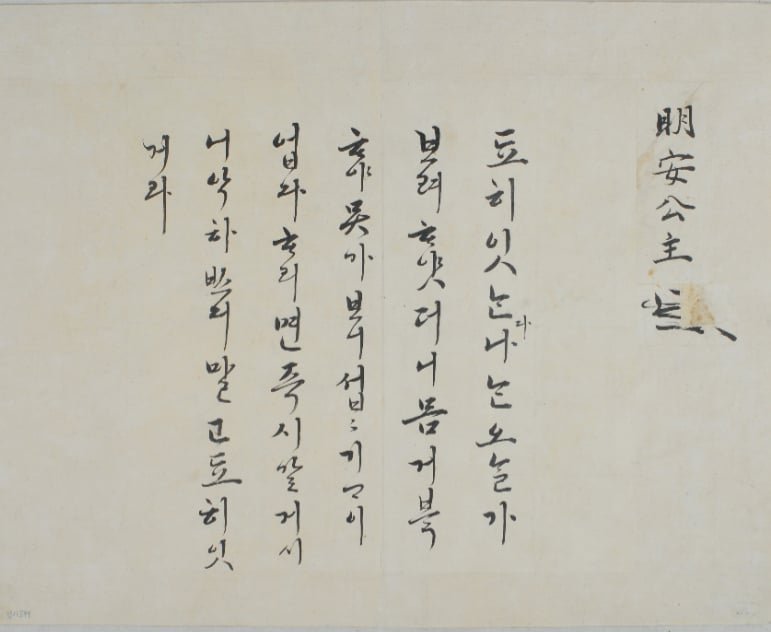 明安公主
됴히잇ᄂᆞᆫ다나ᄂᆞᆫ오ᄂᆞᆯ가
보려ᄒᆞ얏더니몸거북
ᄒᆞ야못가보니섭〻기ᄀᆞ이
업다ᄒᆞ리면즉시갈게시
니악하 말고됴히잇
게라